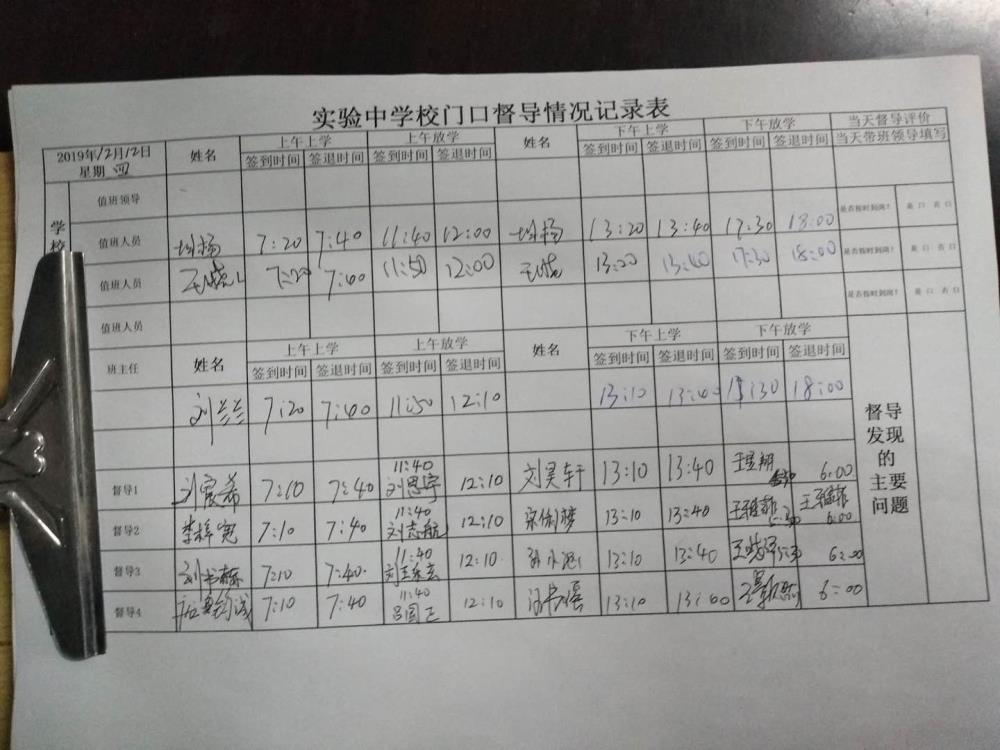 实验中学校门口督导情况记录表
2019年12月12日 星期 四 姓名 上午上学 上午放学 姓名 下午上学 下午放学 当天督导评价
签到时间 签退时间 签到时间 签退时间 签到时间 签退时间 签到时间 签退时间 当天带班领导填写
学校
值班领导 是否按时到岗? 是 口 否 口
值班人员 7:20 7:40 11:40 12:00 13:20 13:40 17:30 18:00 是否按时到岗? 是 口 否 口
值班人员 7:20 7:40 11:50 12:00 13:20 13:40 17:30 18:00 是否按时到岗? 是 口 否 口
值班人员
班主任 姓名 上午上学 上午放学 姓名 下午上学 下午放学
签到时间 签退时间 签到时间 签退时间 签到时间 签退时间 签到时间 签退时间
刘兰兰 7:20 7:40 11:50 12:10 13:10 13:40 18:00
督导发现的主要问题
督导1 刘宸希 7:10 7:40 11:40 刘思宇 12:10 刘昊轩 13:10 13:40 王昱翔 6:00
督导2 李梓宽 7:10 7:40 11:40 刘志航 12:10 13:10 13:40 6:00
督导3 7:10 7:40 11:40 12:10 13:10 13:40 6:00
督导4 7:10 7:40 11:40 吕国正 12:10 13:10 6:00